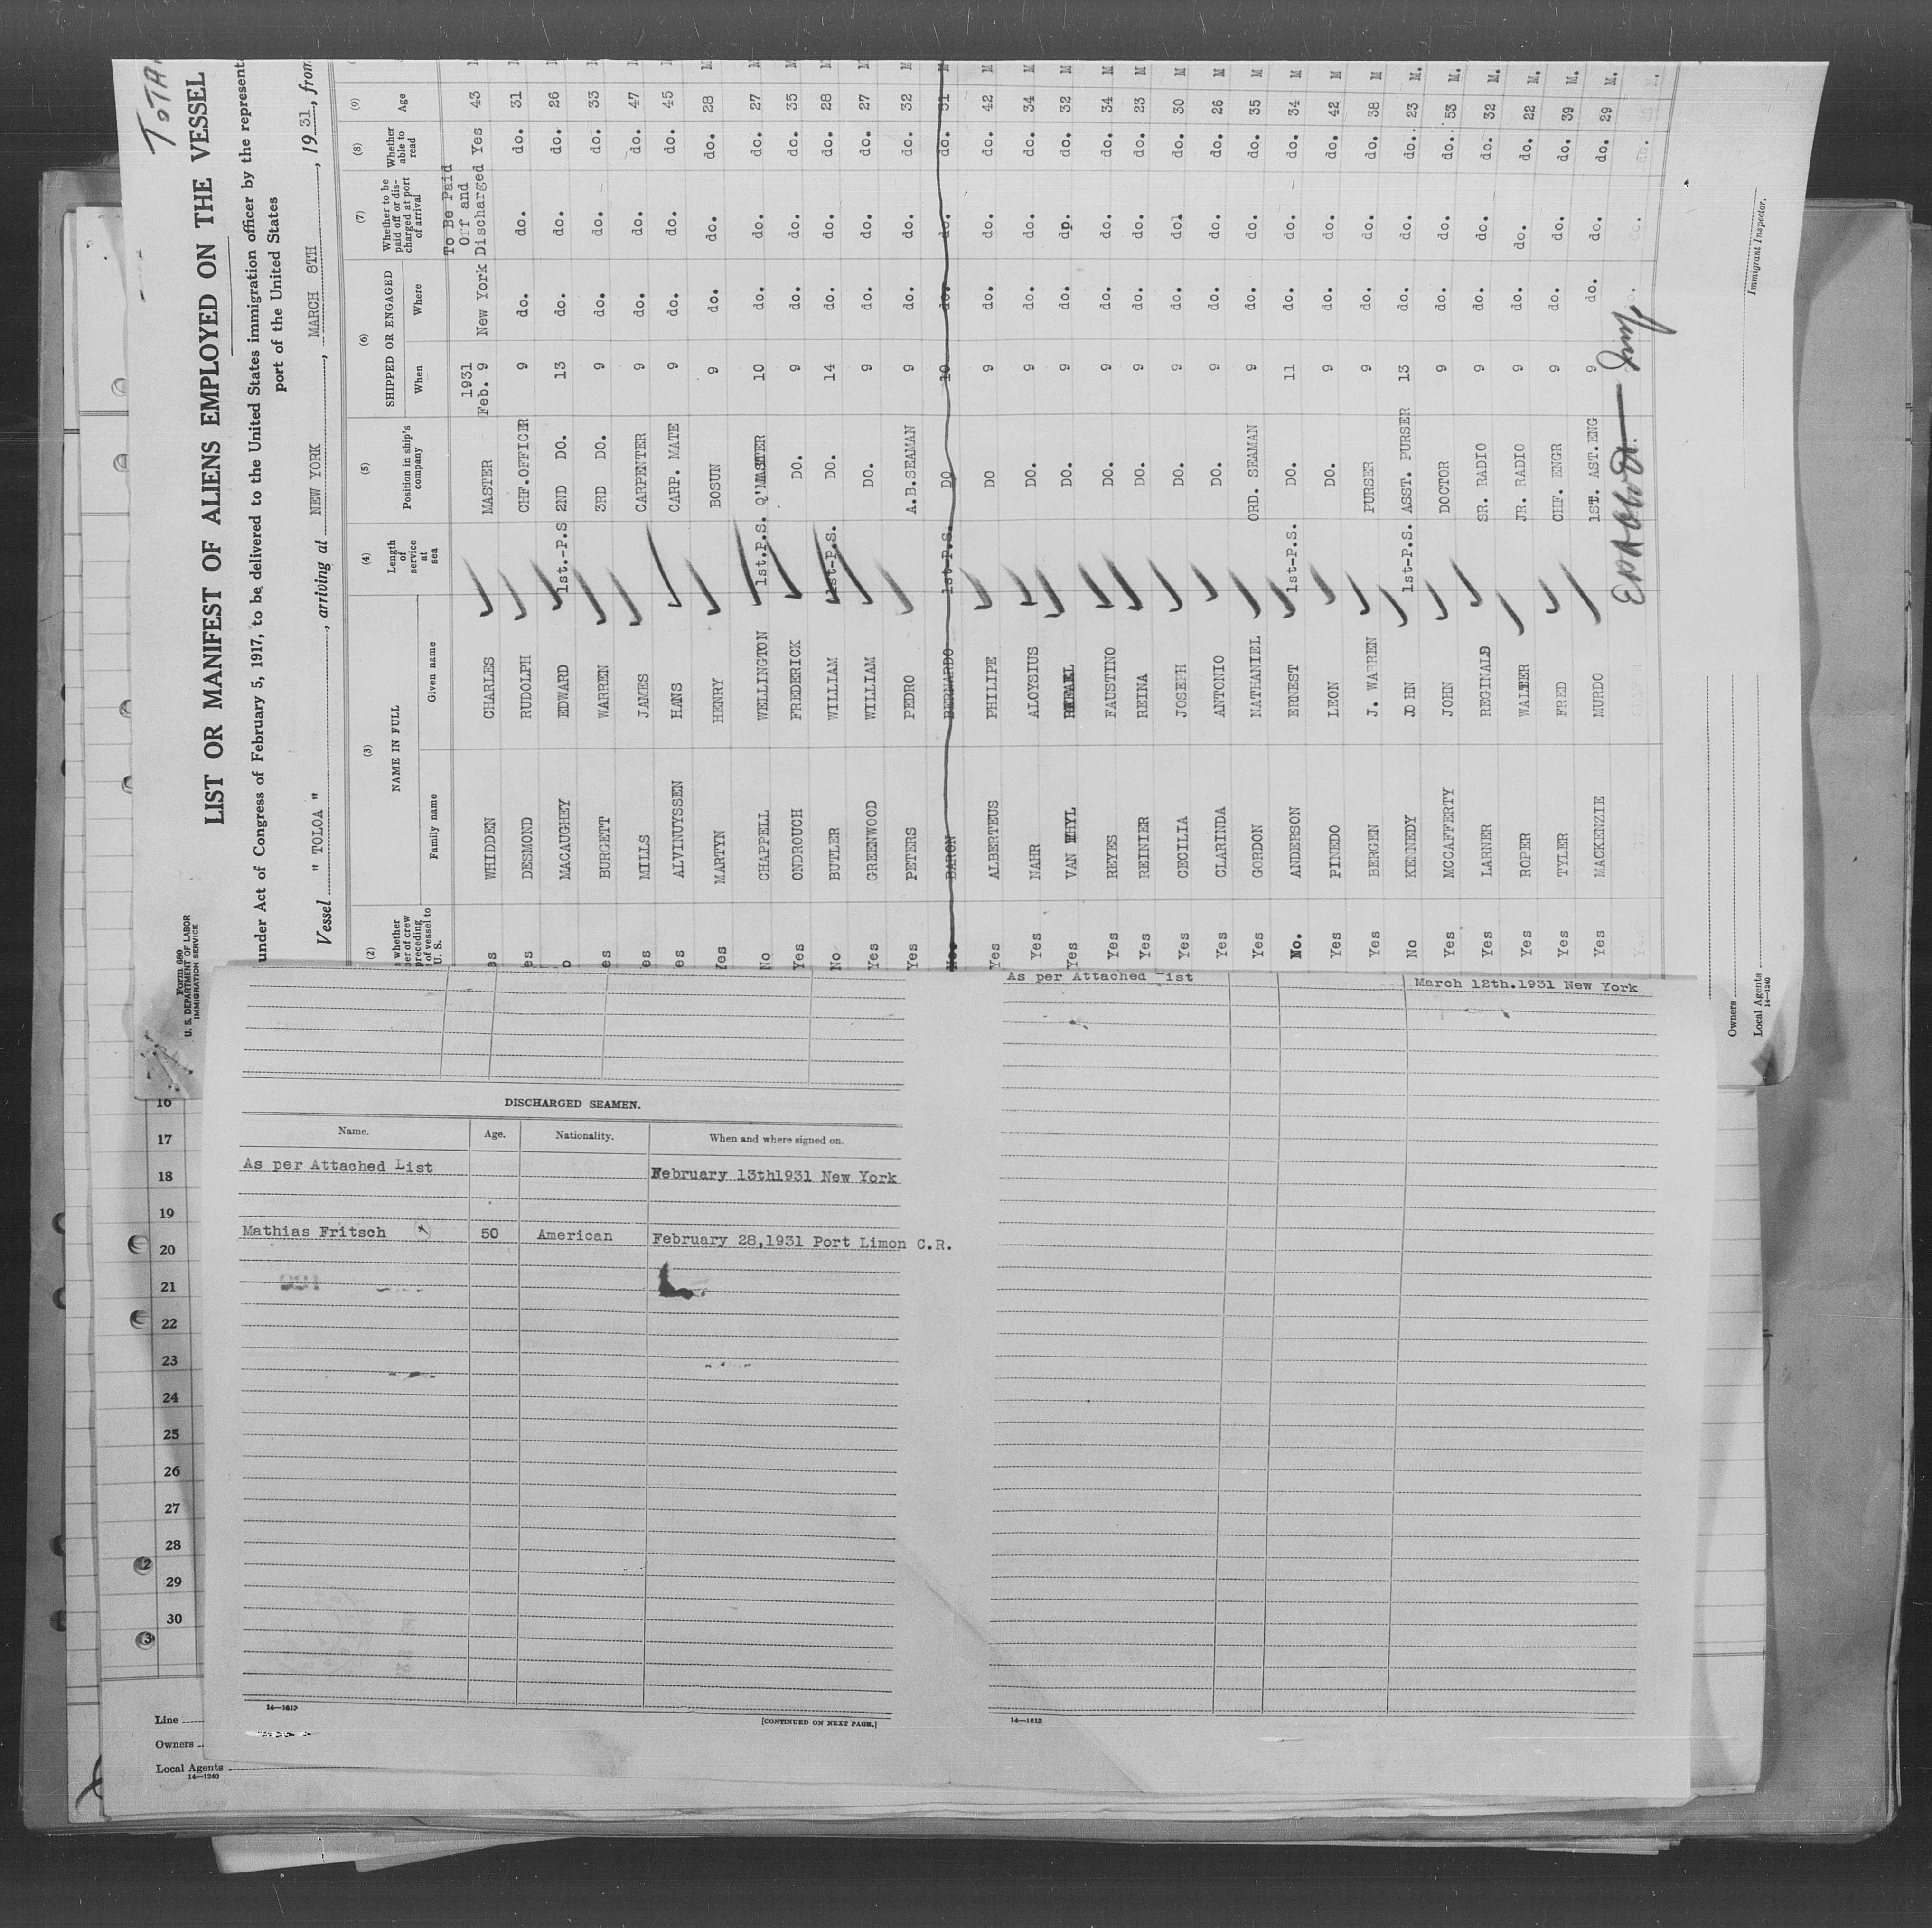 TOTA
Form 680
U. S. DEPARTMENT OF LABOR
IMMIGRATION SERVICE
LIST OR MANIFEST OF ALIENS EMPLOYED ON THE VESSEL
under Act of Congress of February 5, 1917, to be delivered to the United States immigration officer by the represent
port of the United States
Vessel " TOLOA ", arriving at NEW YORK, MARCH 8TH, 1931, from
(2) (3) (4) (5) (6) (7) (8) (9)
whether
er of crew
preceding
of vessel to
U. S.
NAME IN FULL
Family name Given name
Length of service at sea
Position in ship's company
SHIPPED OR ENGAGED
When Where
Whether to be paid off or discharged at port of arrival
Whether able to read
Age
es WHIDDEN CHARLES MASTER 1931 Feb. 9 New York To Be Paid Off and Discharged Yes 43
es DESMOND RUDOLPH CHF.OFFICER 9 do. do. do. 31
o MACAUGHEY EDWARD 1st.-P.S 2ND DO. 13 do. do. do. 26
es BURGETT WARREN 3RD DO. 9 do. do. do. 33
es MILLS JAMES CARPENTER 9 do. do. do. 47
es ALVINUYSSEN HANS CARP. MATE 9 do. do. do. 45
Yes MARTYN HENRY BOSUN 9 do. do. do. 28 M
No CHAPPELL WELLINGTON 1st.P.S. Q'MASTER 10 do. do. do. 27 M
Yes ONDROUCH FREDERICK DO. 9 do. do. do. 35 M
No BUTLER WILLIAM 1st-P.S. DO. 14 do. do. do. 28 M
Yes GREENWOOD WILLIAM DO. 9 do. do. do. 27 M
Yes PETERS PEDRO A.B.SEAMAN 9 do. do. do. 32 M
No. BARON BERNARDO 1st-P.S. DO 10 do. do. do. 31 M
Yes ALBERTEUS PHILIPE DO 9 do. do. do. 42 M
Yes NAHR ALOYSIUS DO. 9 do. do. do. 34 M
Yes VAN WHYL DO. 9 do. do. do. 32 M
Yes REYES FAUSTINO DO. 9 do. do. do. 34 M
Yes REINIER REINA DO. 9 do. do. do. 23 M
Yes CECILIA JOSEPH DO. 9 do. do. do. 30 M
Yes CLARINDA ANTONIO DO. 9 do. do. do. 26 M
Yes GORDON NATHANIEL ORD. SEAMAN 9 do. do. do. 35 M
No. ANDERSON ERNEST 1st-P.S. DO. 11 do. do. do. 34 M
Yes PINEDO LEON DO. 9 do. do. do. 42 M
Yes BERGEN J. WARREN PURSER 9 do. do. do. 38 M
No KENNEDY JOHN 1st-P.S. ASST. PURSER 13 do. do. do. 23 M.
Yes MCCAFFERTY JOHN DOCTOR 9 do. do. do. 53 M.
Yes LARNER REGINALD SR. RADIO 9 do. do. do. 32 M.
Yes ROPER WALTER JR. RADIO 9 do. do. do. 22 M.
Yes TYLER FRED CHF. ENGR 9 do. do. do. 39 M.
Yes MACKENZIE MURDO 1ST. AST. ENG 9 do. do. do. 29 M.
Immigrant Inspector.
Owners
Local Agents
14—1240
As per Attached ist March 12th.1931 New York
DISCHARGED SEAMEN.
Name. Age. Nationality. When and where signed on.
As per Attached List February 13th1931 New York
Mathias Fritsch 50 American February 28,1931 Port Limon C.R.
14—1613
[CONTINUED ON NEXT PAGE.]
14—1613
16
17
18
19
20
21
22
23
24
25
26
27
28
29
30
Line
Owners
Local Agents
14—1240